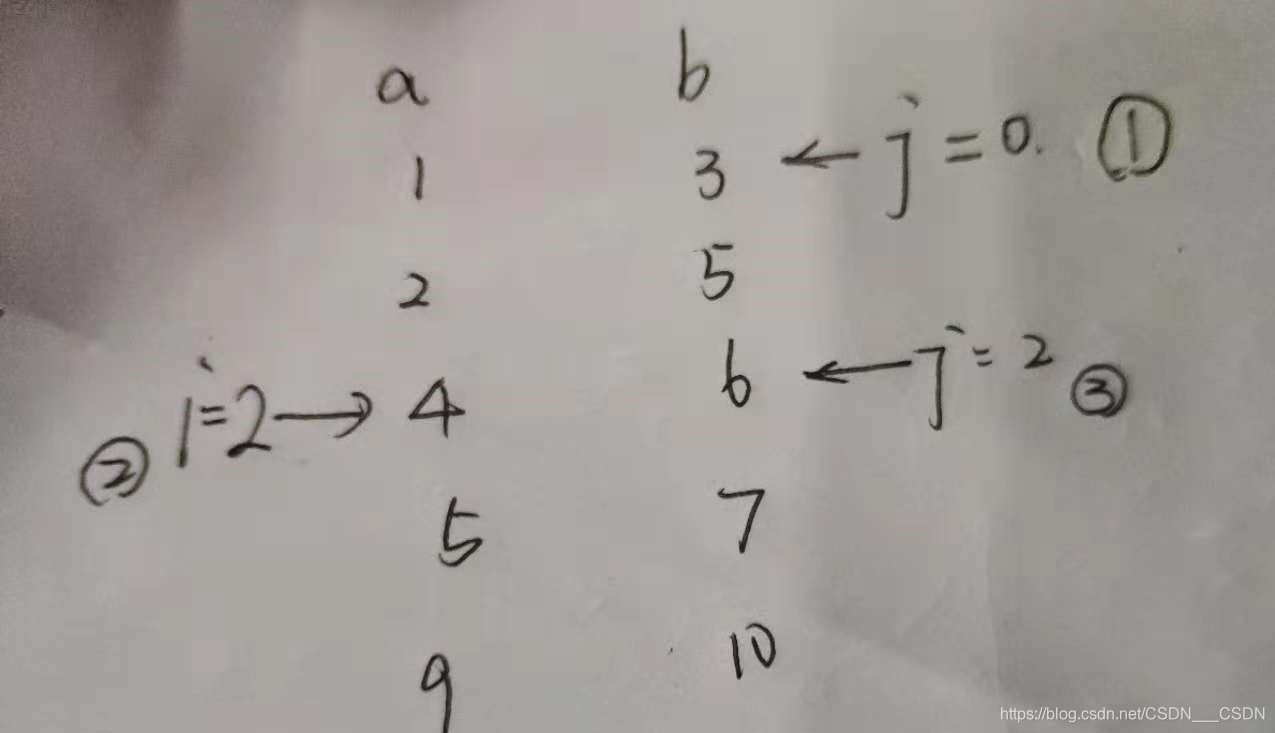 a b
1 3 ← j = 0. ①
2 5
② i=2 → 4 6 ← j = 2 ③
5 7
9 10
https://blog.csdn.net/CSDN___CSDN